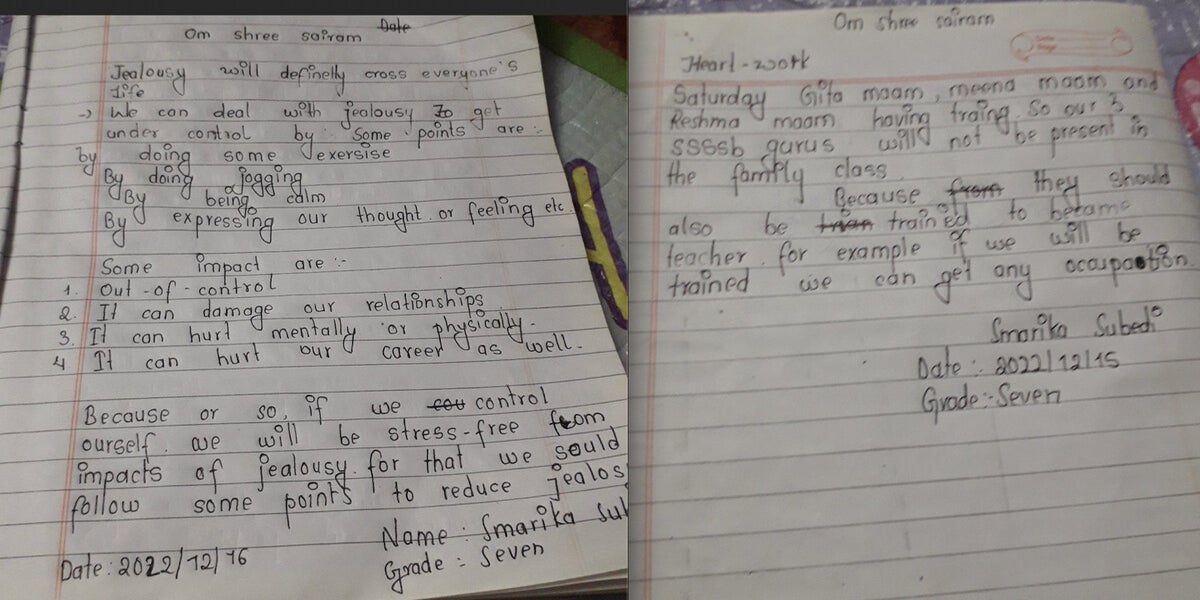 Om shree sairam
Date
Jealousy will definelly cross everyone's
life
→ We can deal with jealousy to get
under control by. Some points are :-
by doing some exersise
By doing jogging
By being calm
By expressing our thought or feeling etc.
Some impact are :-
1. Out-of-control
2. It can damage our relationships
3. It can hurt mentally or physically.
4 It can hurt our career as well.
Because or so, if we cou control
ourself we will be stress-free from
impacts of jealousy. for that we sould
follow some points to reduce jealos
Name : Smarika Sub
Date: 2022/12/16
Grade :- Seven
Om shree sairam
Heart-work
Saturday Gita maam, meena maam and
Reshma maam having traing. So our 3
ssssb gurus will not be present in
the family class.
Because from they should
also be trian trained to became
teacher. for example if we will be
trained we can get any occupation.
Smarika Subedi
Date :- 2022/12/15
Grade:- Seven